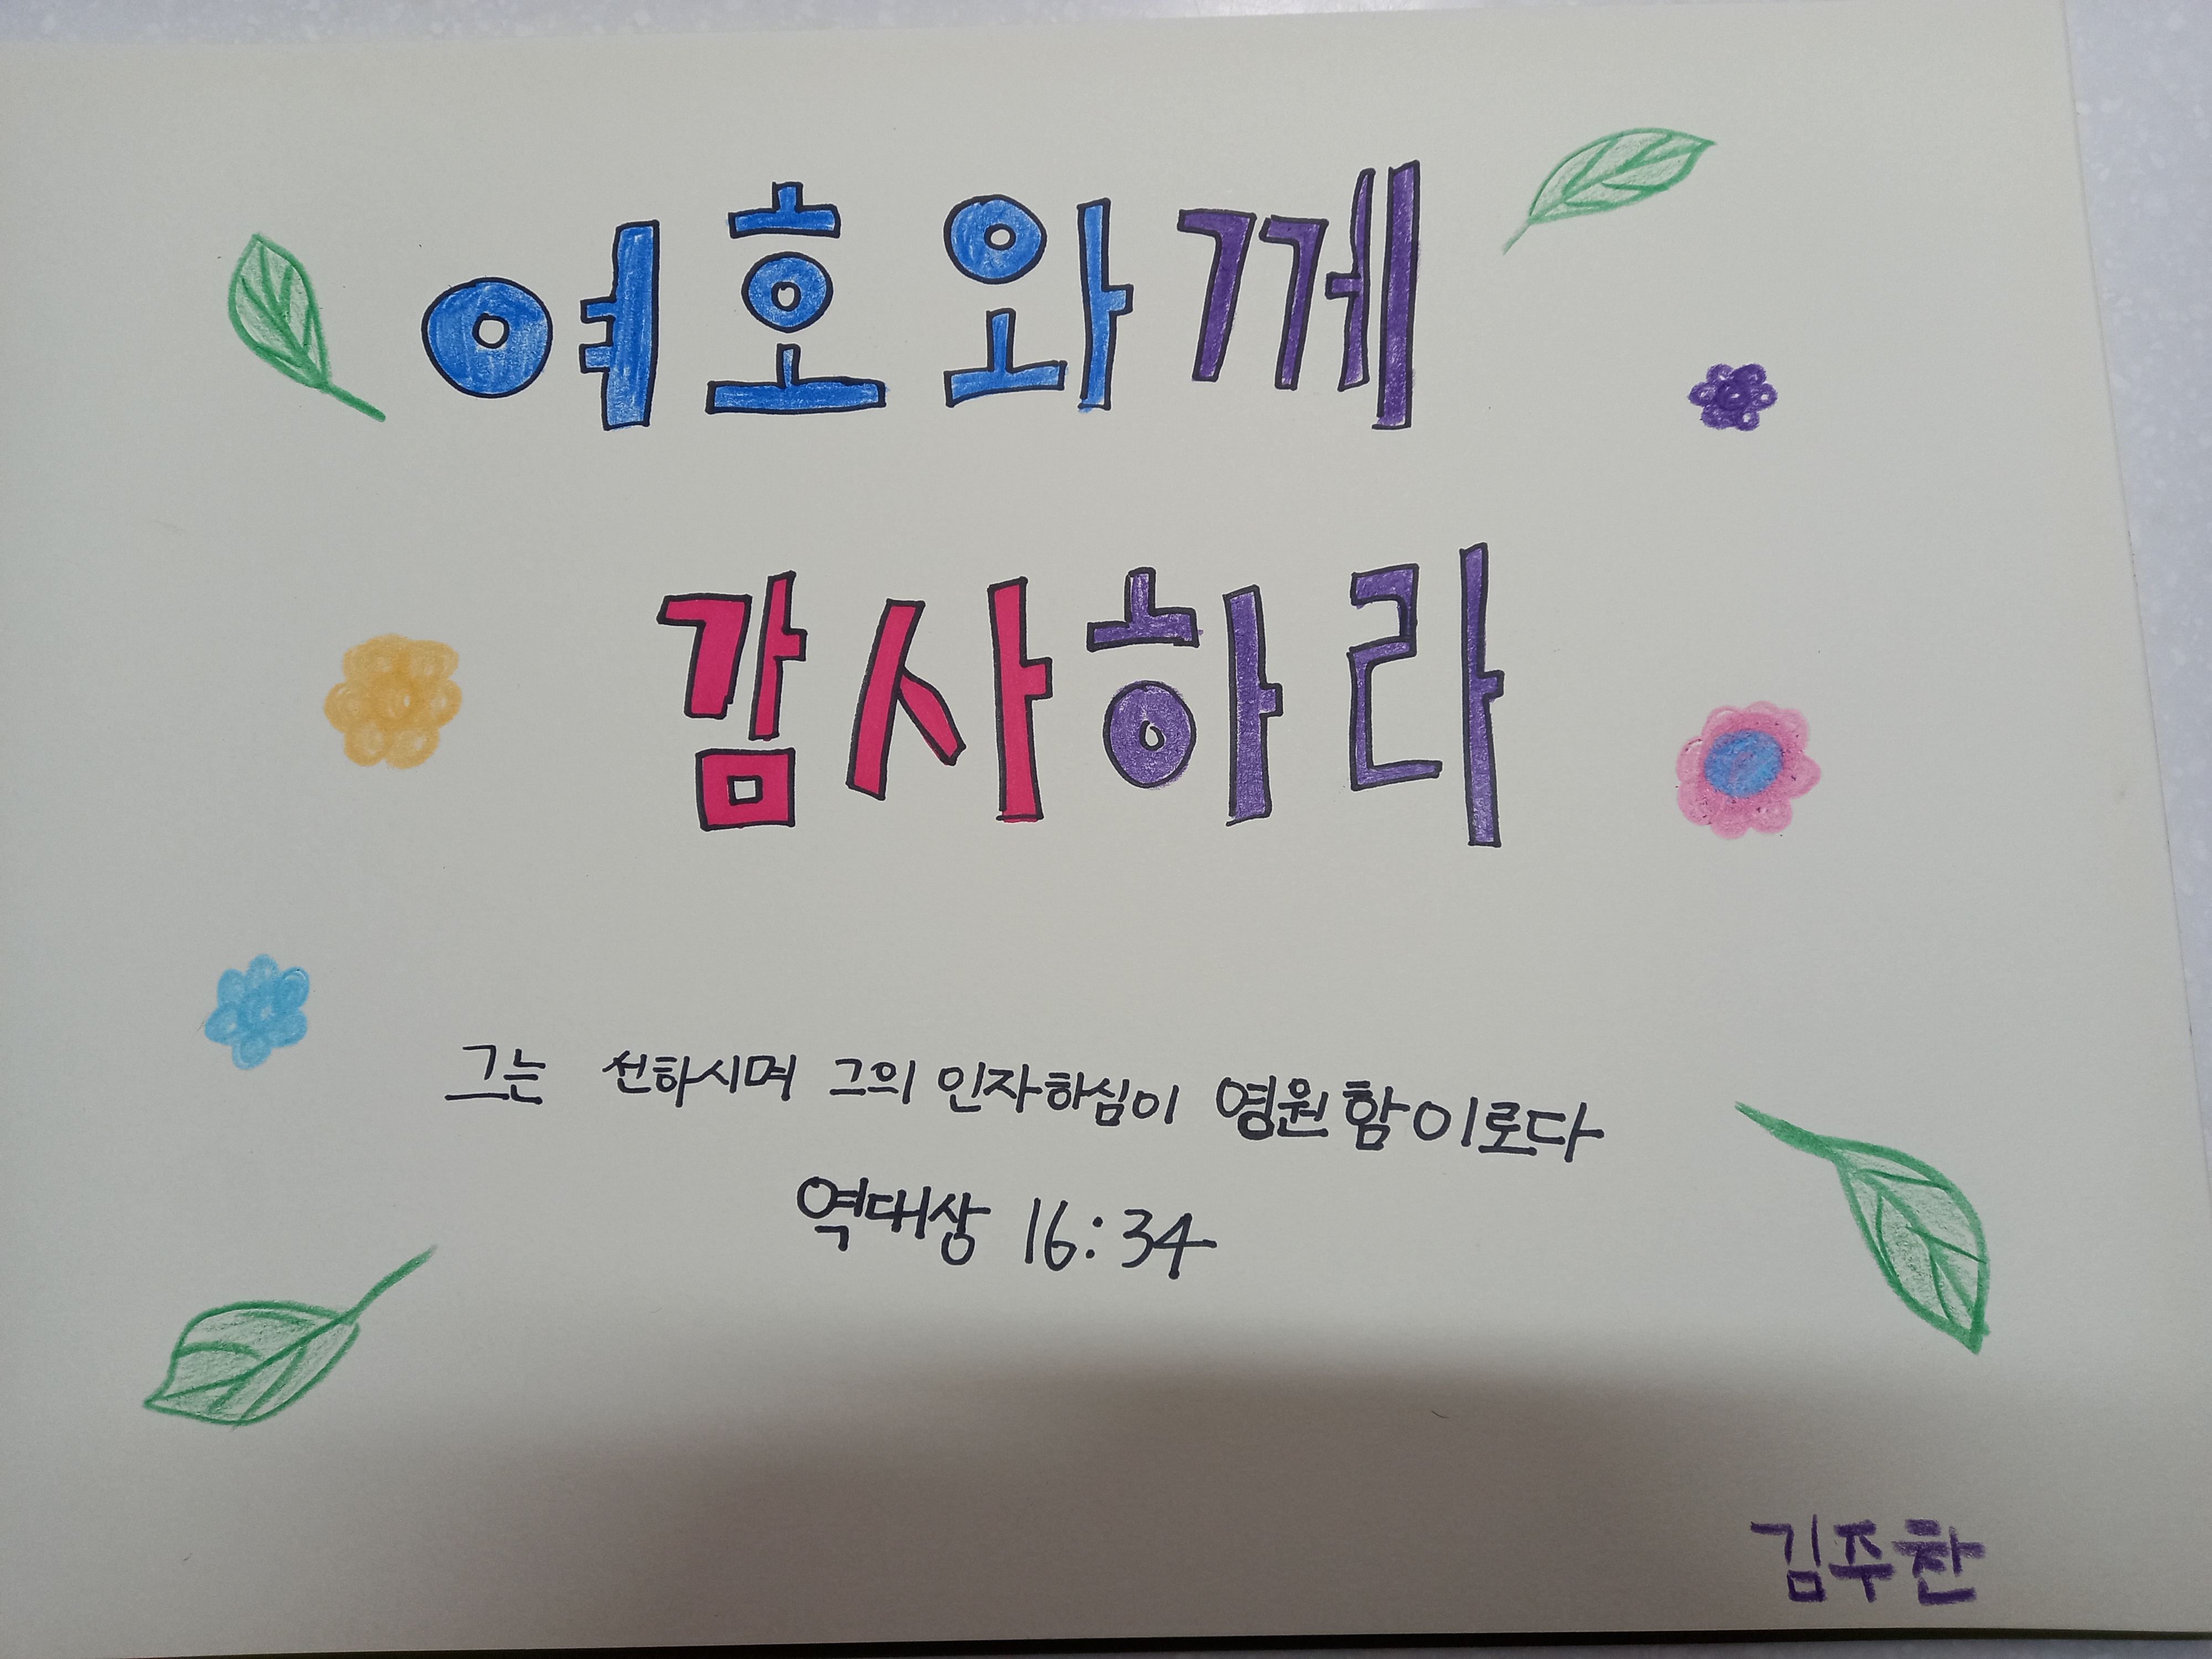 여호와께
감사하라
그는 선하시며 그의 인자하심이 영원함이로다
역대상 16:34
김주찬